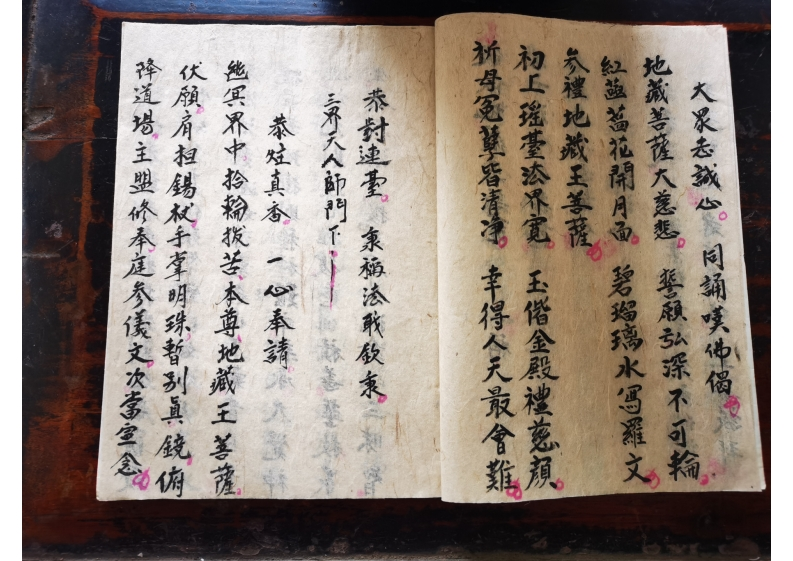 大眾志誠心 同誦嘆佛偈
地藏菩薩大慈悲 誓願弘深不可輪
紅蓝菡花開月面 碧瑠璃水寫羅文
参禮地藏王菩薩
初上瑤臺法界寬 玉偕金殿禮慈顔
祈母冤孽皆清凈 幸得人天最會難
恭對連臺 泉稱法戢欽泉
三界天人師門下
恭炷真香 一心奉請
幽冥界中拾輪拔苦本尊地藏王菩薩
伏願肩担錫杖手掌明珠暫别真鏡俯
降道場主盟修奉庭参儀文次當宣念